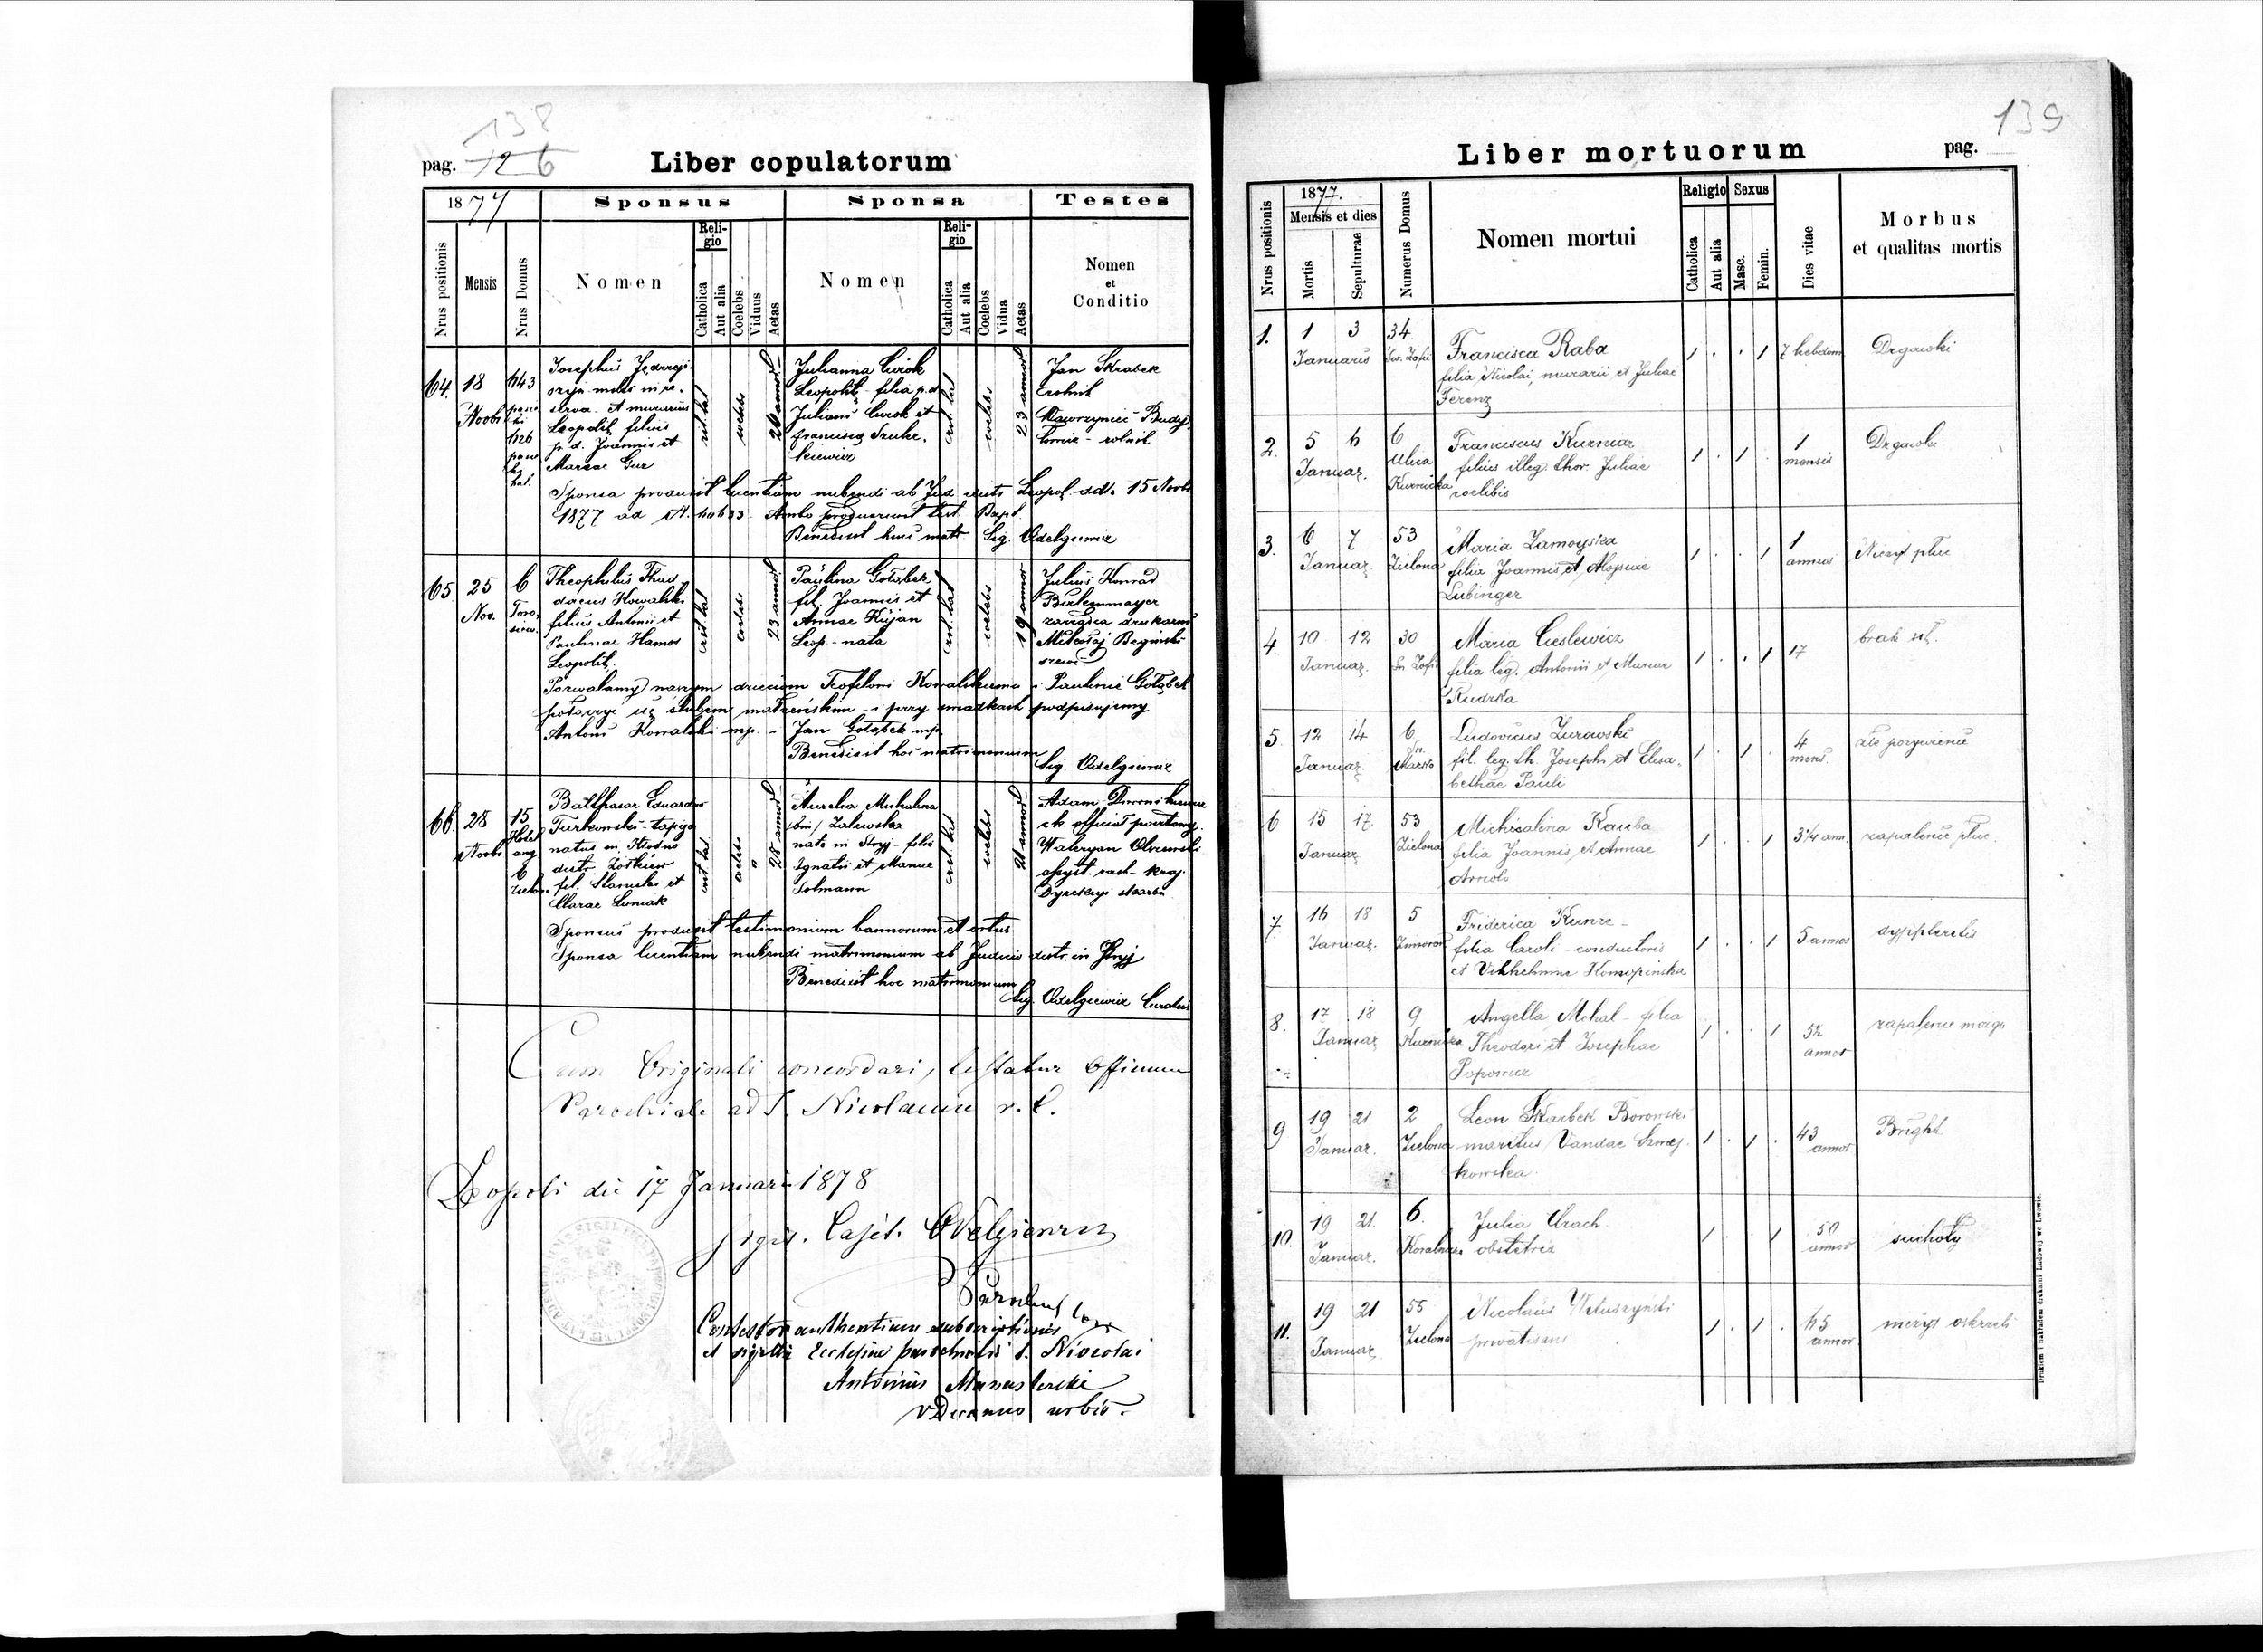 138
pag. 126
Liber copulatorum
1877
Sponsus
Sponsa
Testes
Nrus positionis
Mensis
Nrus Domus
Nomen
Religio
Catholica
Aut alia
Coelebs
Viduus
Aetas
Nomen
Religio
Catholica
Aut alia
Coelebs
Vidua
Aetas
Nomen
et
Conditio
64.
18
Novbr
643
Josephus
serva. et murarius
Leopolit, filius
p. d. Joannis et
Mariae Gur
rit lat
coelebs
26 annor
Julianna Cwiok
Leopolit, filia p. d.
Juliani Cwiok et
Francisca
rit. lat
coelebs
23 annor
Jan Skrabek
Wawrzyniec
Sponsa produxit licentiam nubendi ab Jud. Leopol. ddo. 15 Novbr
1877 ad N. Ambo produxerunt test. Bapt.
Benedixit huic matr Sig. Odelgiewicz
65
25
Nov.
6
Theophilus Thad
daeus Kowalski
filius Antonii et
Paulinae Hamos
Leopolit.
rit lat
coelebs
23 annor
Paulina Gołąbek
fil. Joannis et
Annae Kujan
Leop - nata
rit. lat
coelebs
19 annor
Julius Konrad
Birkenmayer
zarządca drukarni
Mikołaj
szewc
Pozwalamy naszym dzieciom Teofilowi Kowalskiemu i Paulinie Gołąbek
połączyć się ślubem małżeńskim i przy świadkach podpisujemy
Antoni Kowalski mp. - Jan Gołąbek mp.
Benedixit hoc matrimonium
Sig. Odelgiewicz
66.
28
Novbr
15
Hotel
ang
6
Balthasar Eduardus
Turkowski - tapiga
natus in Kłodno
distr. Żółkiew
fil. Stanislai et
Clarae Luniak
rit lat
coelebs
28 annor
Aurelia Michalina
/bin/ Zalewska
nata in Stryj - filia
Ignatii et Mariae
Solmann
rit lat
coelebs
21 annor
Adam
ck. official pocztowy.
Waleryan
asyst. rach - kraj.
Dyrekcyi skarbu
Sponsus produxit testimonium bannorum et ortus
Sponsa licentiam nubendi matrimonium ab Judicio distr. in Stryj
Benedixit hoc matrimonium
Sig. Odelgiewicz Curatus
Cum Originali concordari, testatur Officium
Parochiale ad S. Nicolaum r. l.
Leopoli die 17 Januari 1878
Sigis. Cajet. Odelgiewicz
Parochus
Contestor authenticum subscriptionis
et sigilli Ecclesiae parochialis S. Nicolai
Antonius Manasterski
VDecanus urbis.
139
Liber mortuorum
pag.
Nrus positionis
1877.
Mensis et dies
Mortis
Sepulturae
Numerus Domus
Nomen mortui
Religio
Catholica
Aut alia
Sexus
Masc.
Femin.
Dies vitae
Morbus
et qualitas mortis
1.
1
3
Januarius
34
św. Zofii
Francisca Raba
filia Nicolai, murarii et Juliae
Ferenz
1 . . 1
7 hebdom
Drgawki
2.
5
6
Januar.
6
Ulica
Kurnicka
Franciscus Kuzniar
filius illeg. thor. Juliae
coelibis
1 . 1 .
1
mensis
Drgawki
3.
6
7
Januar.
53
Zielona
Maria Zamoyska
filia Joannis et Aloysiae
Lubinger
1 . . 1
1
annus
Nieżyt płuc
4
10
12
Januar.
30
Św Zofii
Maria Cieslewicz
filia leg. Antonii et Mariae
Rudzka
1 . . 1
17
brak sił.
5
12
14
Januar.
6
Św.
Marko
Ludovicus Zurawski
fil. leg. th. Josephi et Elisa-
bethae Pauli
1 . 1 .
4
mens.
złe pożywienie
6
15
17.
Januar
53
Zielona
Michalina Kauba
filia Joannis et Annae
Arnold
1 . . 1
3 1/4 ann.
zapalenie płuc.
7
16
18
Januar.
5
Zimorow
Friderica Kunze -
filia Caroli - conductoris
et Vilhelmine
1 . . 1
5 annor
dypphteritis
8.
17
18
Januar
9
Kurnicka
Angella Mchal - filia
Theodori et Josephae
Popowicz
1 . . 1
52
annor
zapalenie mózgu
9
19
21
Januar.
2
Zielona
Leon Skarbek Borowski
maritus Vandae Szwej-
kowska.
1 . 1 .
43
annor
Bright
10.
19
21.
Januar.
6.
Julia Urach
obstetrix
1 . . 1
50
annor
suchoty
11.
19
21
Januar
55
Zielona
Nicolaus Wituszyński
privatisans
1 . 1 .
65
annor.
nieżyt oskrzeli
Drukiem i nakładem drukarni Ludowej we Lwowie.